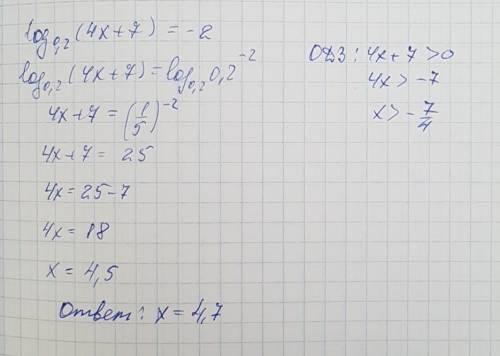 log₀,₂(4x+7) = -2
log₀,₂(4x+7) = log₀,₂0,2⁻²
4x+7 = (1/5)⁻²
4x+7 = 25
4x = 25-7
4x = 18
x = 4,5
Ответ: x = 4,7
ОДЗ: 4x+7 >0
4x > -7
x > -7/4